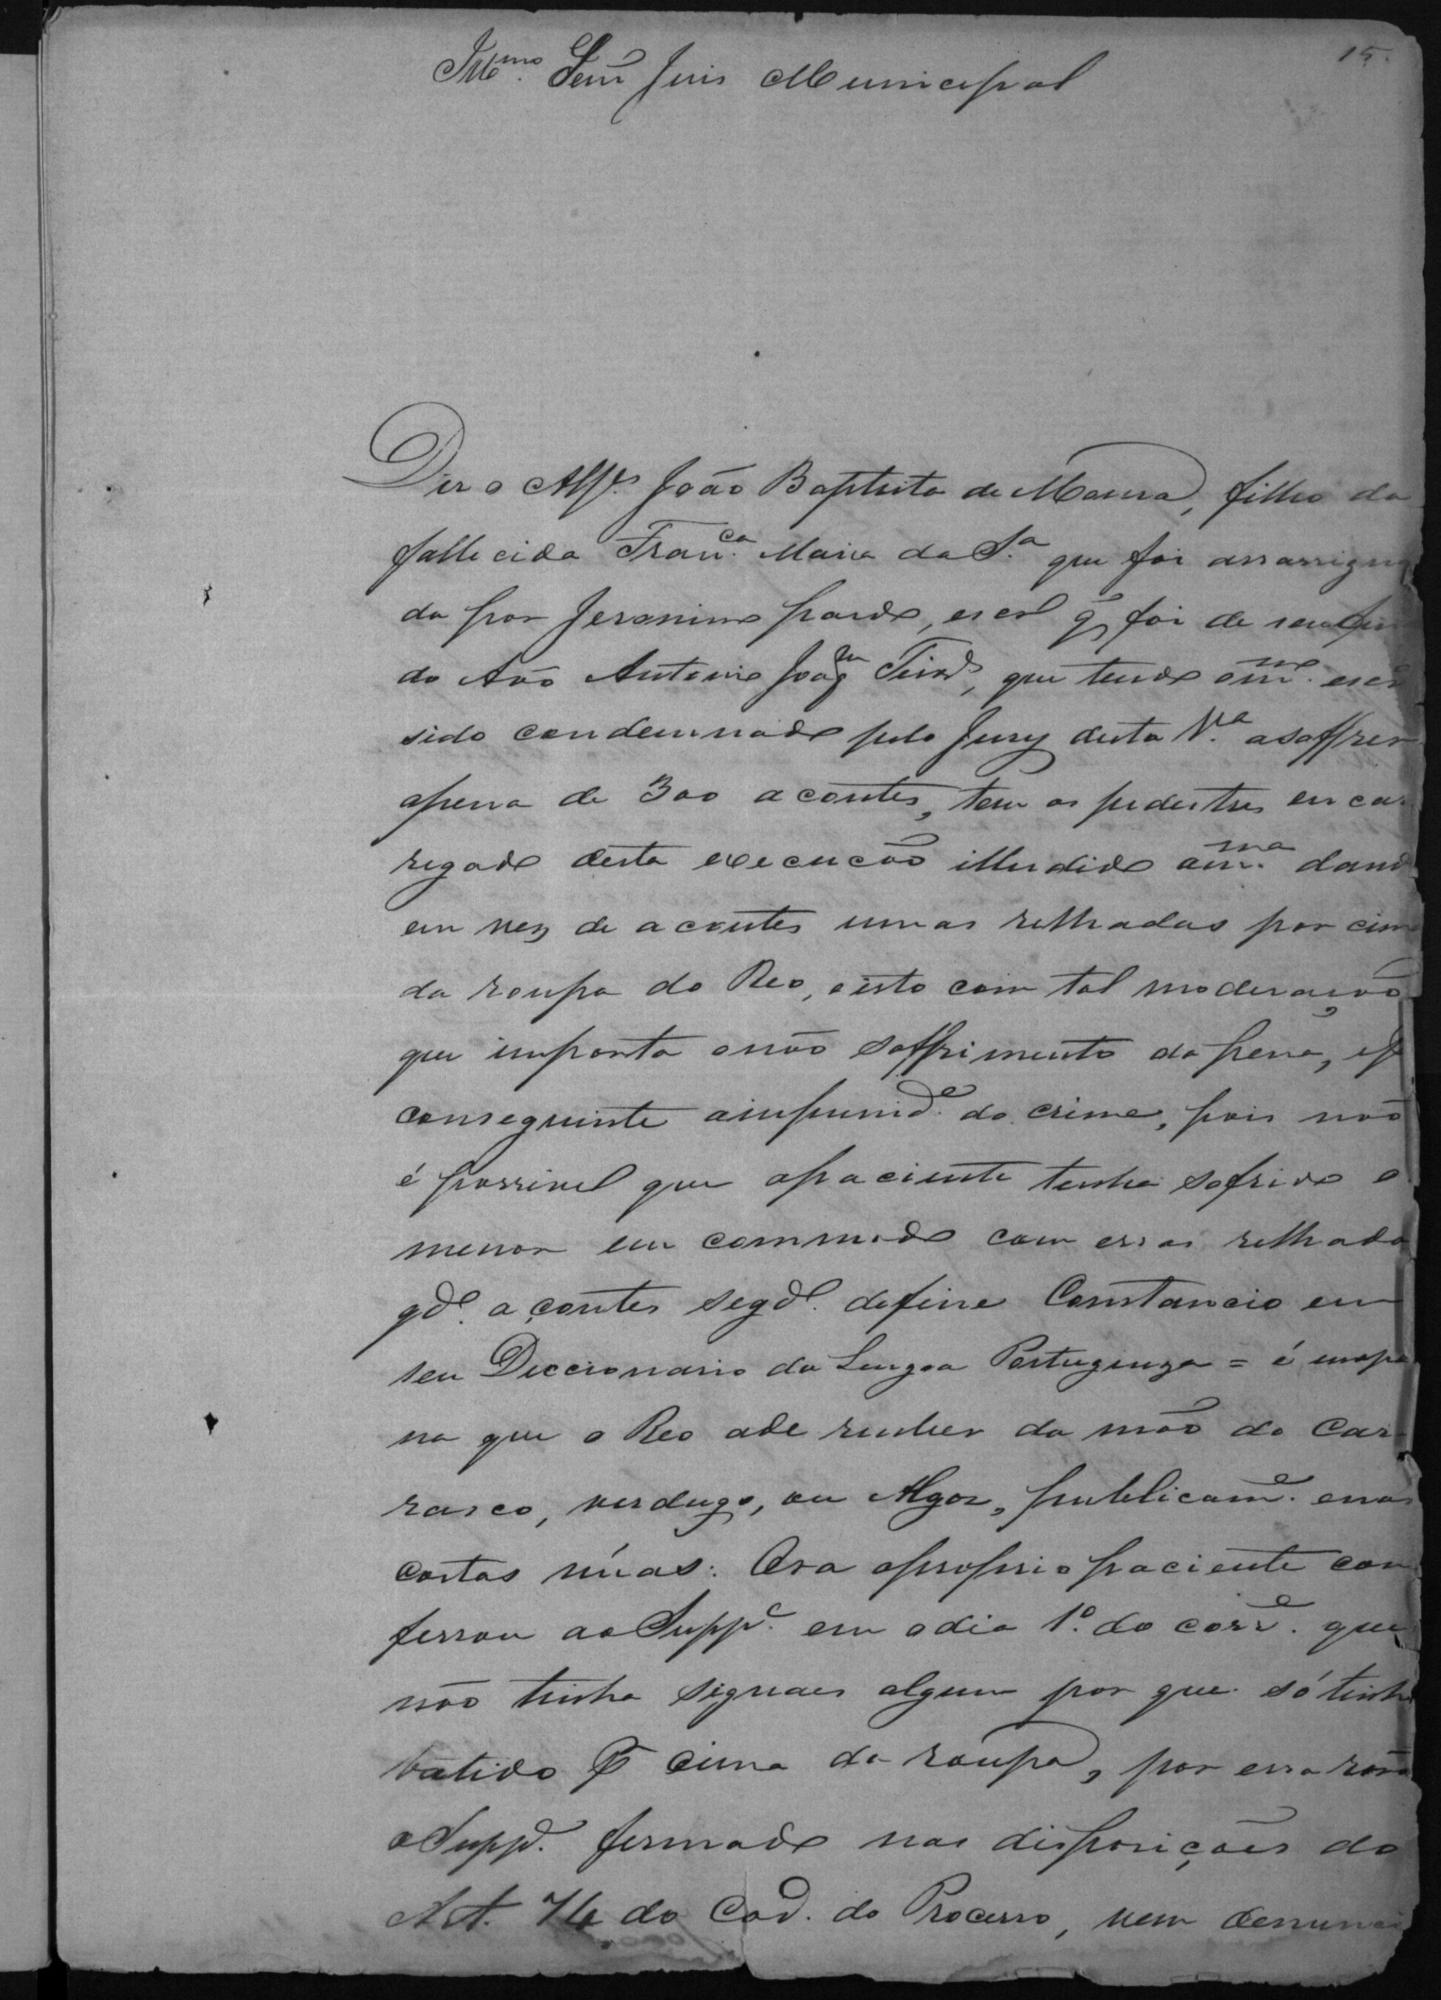 15.
Illmo. Senr. Juis Municipal
Diz o Alfs. João Baptista de Moura, filho da
fallecida Franca. Maria da Sa. que foi assassina
da por Jeronimo pardo, escro q. foi de seu
do Avô Antonio Joaqm. que tendo o mmo. escro
sido condemnado pelo Jury desta Va. a soffrer
a pena de 300 acoutes, tem os pedestres encar
regado desta execução illudido a mma. dand
em vez de acoutes umas relhadas por cima
da roupa do Reo, e isto com tal moderação
que importa o não soffrimento da pena, e p
conseguinte a impunide. do crime, pois não
é possivel que o paciente tenha sofrido o
menor encommodo com essas relhada
qdo. açoutes segdo. define Constancio em
seu Diccionario da Lingoa Portugueza = é uma pe
na que o Reo ade receber da mão do Car-
rasco, verdugo, ou Algoz, publicame. e nas
costas núas: Ora o proprio paciente con
fessou ao Suppe. em o dia 1º. do corre. que
não tinha signaes algum por que só tinha
batido p cima da roupa, por essa rasão
o Suppe. firmado nas disposições do
Art. 74 do Cod. do Processo, vem denunci